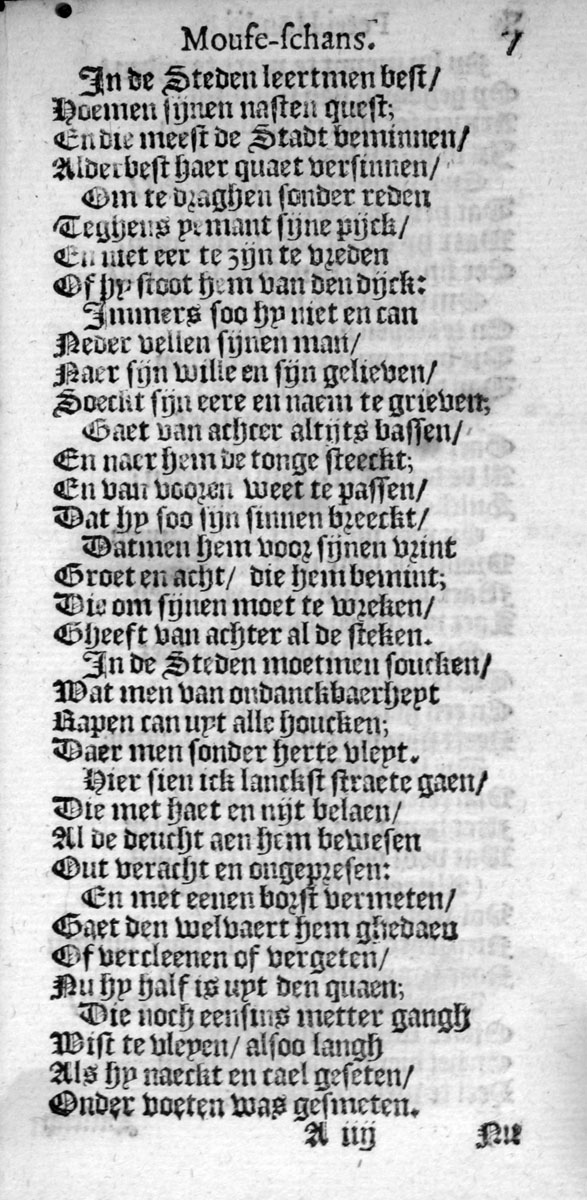 Mouse-schans. 7
In de Steden leertmen best/
Hoemen sijnen nasten quest;
En die meest de Stadt beminnen/
Alderbest haer quaet versinnen/
Om te draghen sonder reden
Teghens yemant sijne pijck/
En niet eer te zijn te vreden
Of hy stoot hem van den dijck:
Immers soo hy niet en can
Neder vellen sijnen man/
Naer sijn wille en sijn gelieven/
Soeckt sijn eere en naem te grieven;
Gaet van achter altijts bassen/
En naer hem de tonge steeckt;
En van vooren weet te passen/
Dat hy soo sijn sinnen breeckt/
Datmen hem voor sijnen vrint
Groet en acht/ die hem bemint;
Die om sijnen moet te wreken/
Gheeft van achter al de steken.
In de Steden moetmen soucken/
Wat men van ondanckbaerheyt
Rapen can uyt alle houcken;
Daer men sonder herte vleyt.
Hier sien ick lanckst straete gaen/
Die met haet en nijt belaen/
Al de deucht aen hem bewesen
Out veracht en ongepresen:
En met eenen borst vermeten/
Gaet den welvaert hem ghedaen
Of vercleenen of vergeten/
Nu hy half is uyt den quaen;
Die noch eensins metter gangh
Wist te vleyen/ alsoo langh
Als hy naeckt en cael geseten/
Onder voeten was gesmeten.
A iiij Nu